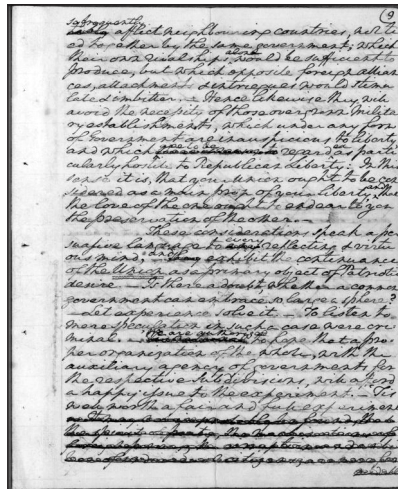 9
so frequently
afflict neighbouring countries, not ti
ed together by the same government; which
alone
their own rivalships would be sufficient to
produce; but which opposite foreign allian
ces, attachments & intriegues would stimu
late & imbitter. - Hence likewise they will
avoid the necessity of those overgrown Milita
ry establishments, which under any form
of Government are inauspicious to liberty,
and which are to be regarded as parti
cularly hostile to Republican Liberty: In this
sense it is, that your union ought to be con
sidered as a main prop of your liberty, and that
the love of the one ought to endear to you
the preservation of the other. -
These considerations speak a per
suasive language to every reflecting & virtu
ous mind, and exhibit the continuance
of the Union as a primary object of Patriotic
desire. - Is there a doubt, whether a common
government can embrace so large a sphere?
- Let experience solve it. - To listen to
mere speculation in such a case were cri
minal. - We are authorized to hope that a pro
per organization of the whole, with the
auxiliary agency of governments for
the respective Sub divisions, will afford
a happy issue to the experiment. - 'Tis
well worth a fair and full experiment